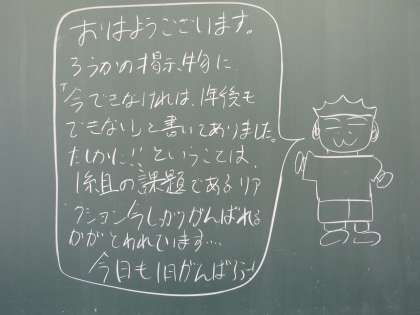 おはようございます。
ろうかの掲示物に
「今できなければ、1年後も
できない」と書いてありました。
たしかに!!ということは、
1糸且の課題であるリア
クション今しっかりがんばれる
かがとわれています…
今日も1日がんばろう!